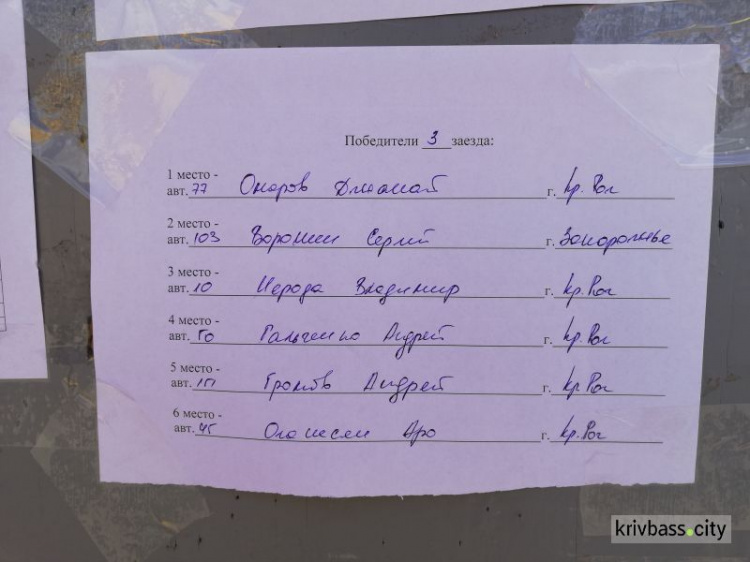 Победители 3 заезда:
1 место -
авт. 77 Омаров г. Кр. Рог
2 место -
авт. 103 Воронин Сергий г. Запорожье
3 место -
авт. 10 Нерода Владимир г. Кр. Рог
4 место -
авт. Гальченко Андрей г. Кр. Рог
5 место -
авт. Громов Андрей г. Кр. Рог
6 место -
авт. 45 Оганесян Аро г. Кр. Рог
krivbass.city